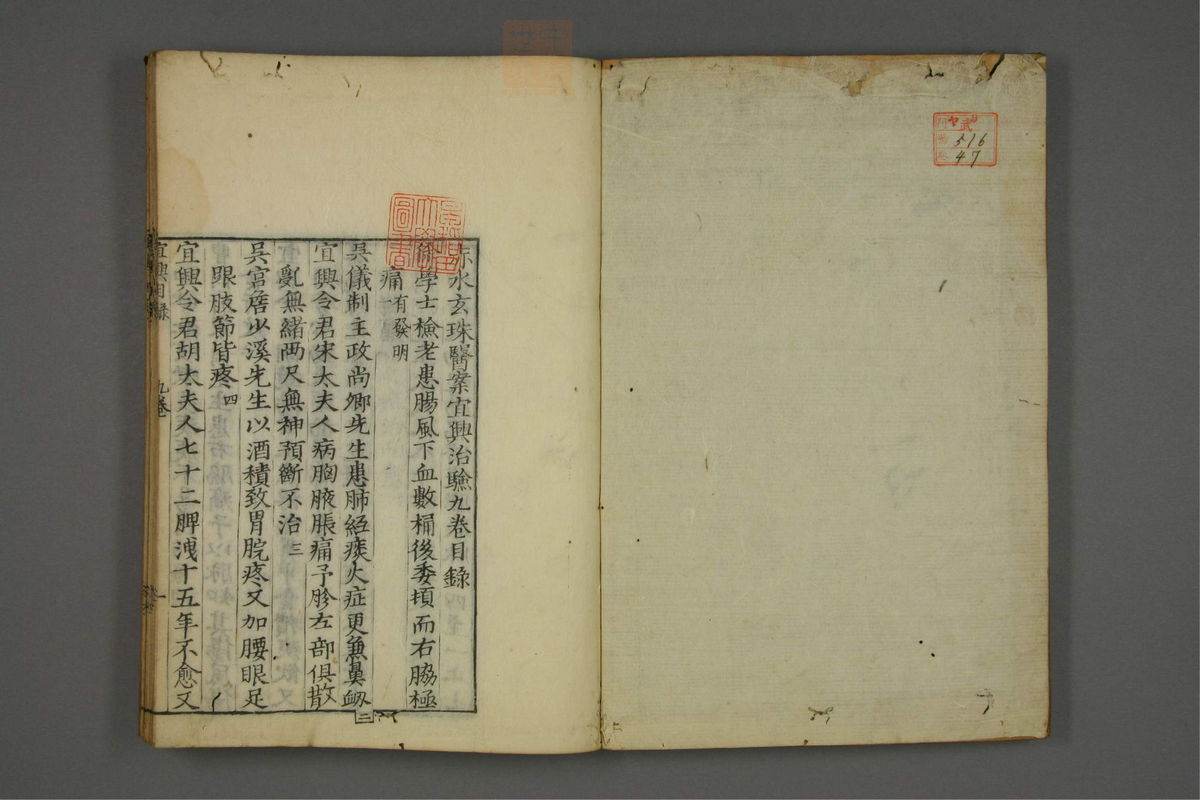 ヤ
武
516
47
赤水玄珠醫案宜興治驗九卷目錄
徐學士檢老患腸風下血數桶後委頓而右脇極
痛有發明一
吳儀制主政尚卿先生患肺經痰火症更兼鼻衂二
宜興令君宋太夫人病胸腋脹痛予胗左部俱散
亂無緒两尺無神預斷不治三
吳宮詹少溪先生以酒積致胃脘疼又加腰眼足
跟肢節皆疼四
宜興令君胡太夫人七十二脾洩十五年不愈又
宜興目錄 九卷 一